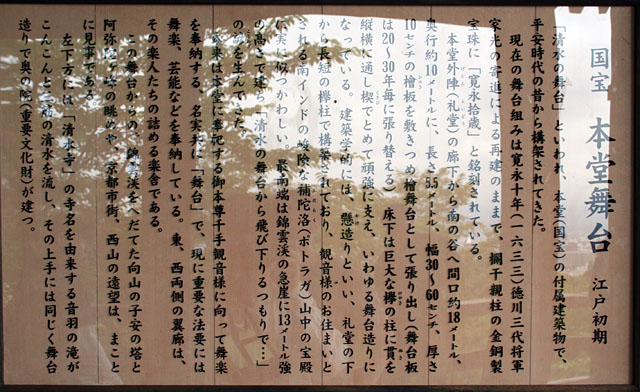 国宝 本堂舞台 江戸初期
「清水の舞台」といわれ、本堂(国宝)の付属建築物で、
平安時代の昔から構架されてきた。
現在の舞台組みは寛永十年(一六三三)徳川三代将軍
家光の寄進による再建のままで、欄干親柱の金銅製
宝珠に「寛永拾歳」と銘刻されている。
本堂外陣(礼堂)の廊下から南の谷へ間口約18メートル、
奥行約10メートルに、長さ5.5メートル、幅30〜60センチ、厚さ
10センチの檜板を敷きつめ檜舞台として張り出し(舞台板
は20〜30年毎に張り替える)床下は巨大な欅の柱に貫を
縦横に通し楔でとめて頑強に支え、いわゆる舞台造りに
なっている。建築学的には、懸造りといい、礼堂の下
から長短の欅柱で構架されており、観音様のお住まいと
される南インドの峻険な補陀洛(ポトラガ)山中の宝殿
に実に似つかわしい。最南端は錦雲渓の急崖に13メートル強
の高さで建ち「清水の舞台から飛び下りるつもりで…」
の を生んできた。
来は本堂に奉祀する御本尊千手観音様に向って舞楽
を奉納する、名実共に「舞台」で、現に重要な法要には
舞楽、芸能などを奉納している。東、西両側の翼廊は、
その楽人たちの詰める楽舎である。
この舞台からの、錦雲渓をへだてた向山の子安の塔と
阿弥陀 の眺めや、京都市街、西山の遠望は、まこと
に見事である。
左下方には「清水寺」の寺名を由来する音羽の滝が
こんこんと三筋の清水を流し、その上手には同じく舞台
造りで奥の院(重要文化財)が建つ。